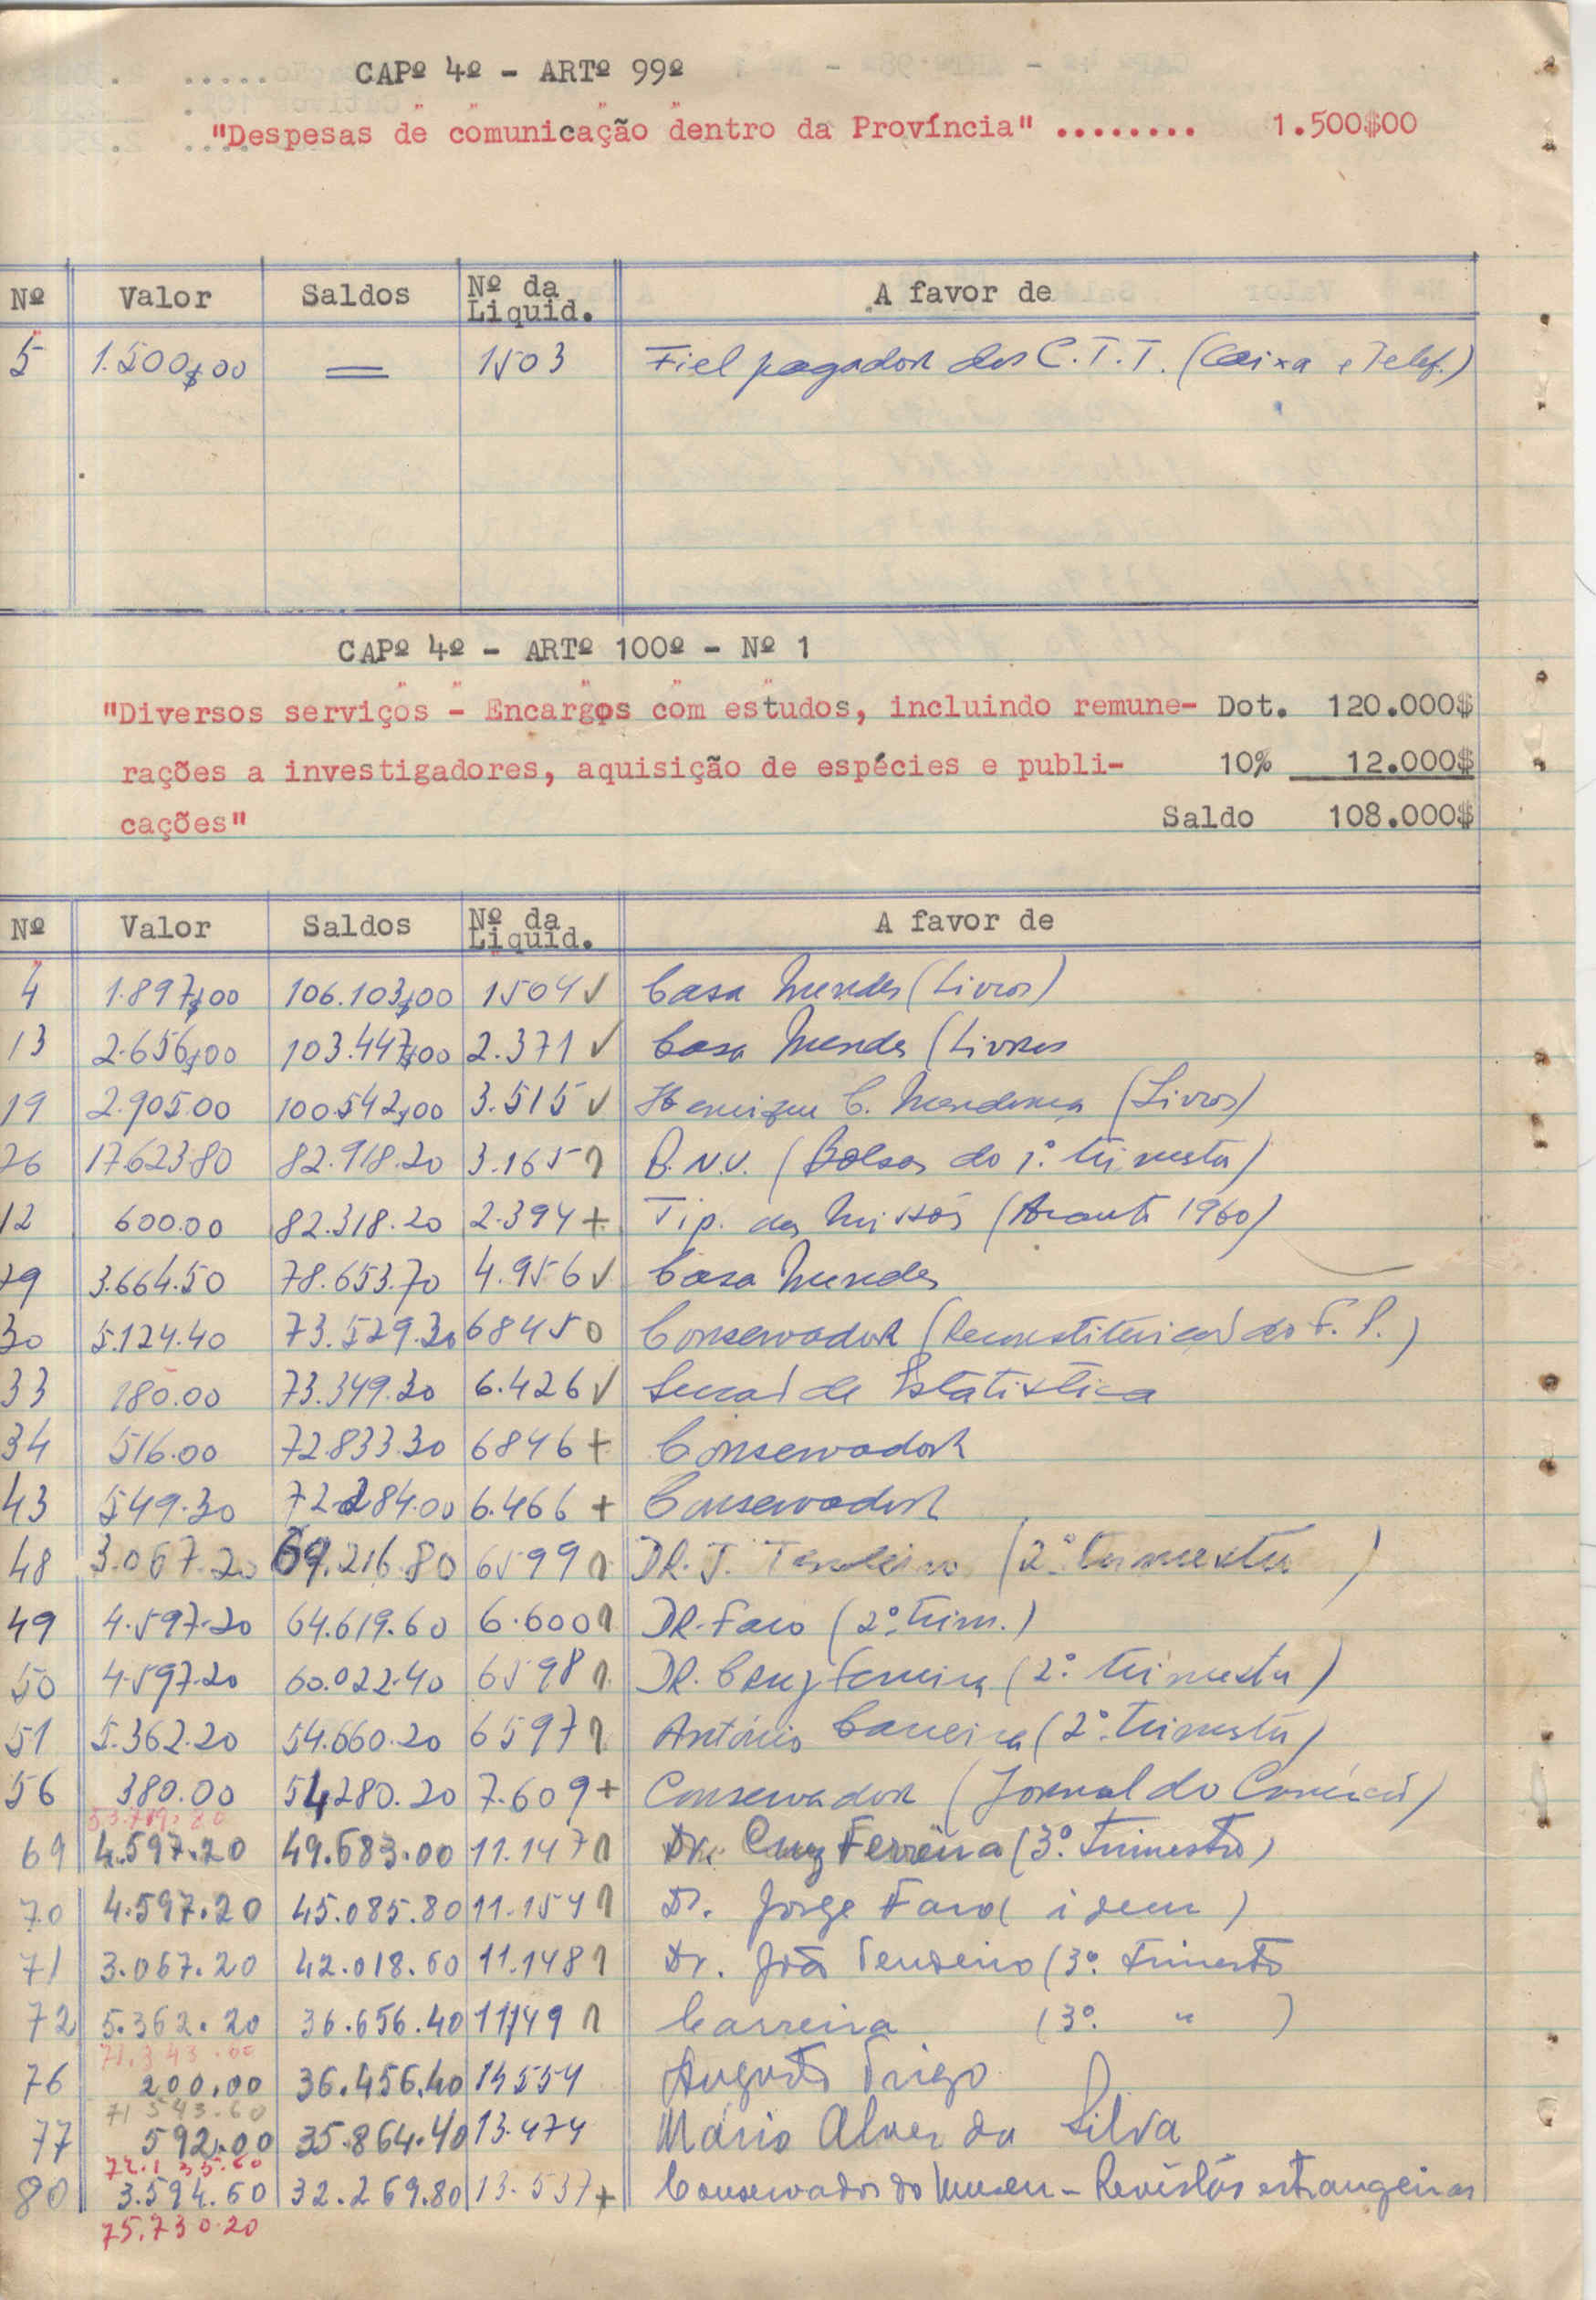 CAPº 4º - ARTº 99º
"Despesas de comunicação dentro da Província" ........ 1.500$00
Nº Valor Saldos Nº da Liquid. A favor de
5 1.500$00 — 1503 Fiel pagador dos C.T.T. (Caixa e Telef.)
CAPº 4º - ARTº 100º - Nº 1
"Diversos serviços - Encargos com estudos, incluindo remune- Dot. 120.000$
rações a investigadores, aquisição de espécies e publi- 10% 12.000$
cações" Saldo 108.000$
Nº Valor Saldos Nº da Liquid. A favor de
4 1.897$00 106.103$00 1504 ✓ Casa Mendes (Livros)
13 2.656$00 103.447$00 2.371 ✓ Casa Mendes (Livros
19 2.905.00 100.542$00 3.515 ✓ Henrique C. Mendonça (Livros)
26 17.623.80 82.918.20 3.165 B.N.U. (Bolsas do 1º trimestre)
12 600.00 82.318.20 2.394 + Tip. das Missões 1960)
29 3.664.50 78.653.70 4.956 ✓ Casa Mendes
30 5.124.40 73.529.30 6845 Conservador (Reconstituição do F.P.)
33 180.00 73.349.30 6.426 ✓ Secção de Estatística
34 516.00 72.833.30 6846 + Conservador
43 549.30 72.284.00 6.466 + Conservador
48 3.067.20 69.216.80 6599 DR. J. Tendeiro (2º trimestre)
49 4.597.20 64.619.60 6.600 DR. Faro (2º trim.)
50 4.597.20 60.022.40 6598 DR. Cruz Ferreira (2º trimestre)
51 5.362.20 54.660.20 6597 António Carreira (2º trimestre)
56 380.00 54.280.20 7.609 + Conservador (Jornal do Comércio)
69 4.597.20 49.683.00 11.147 Dr. Cruz Ferreira (3º trimestre)
70 4.597.20 45.085.80 11.154 Dr. Jorge Faro (idem)
71 3.067.20 42.018.60 11.148 Dr. João Tendeiro (3º trimestre
72 5.362.20 36.656.40 11149 Carreira (3º " )
71.343.60
76 200.00 36.456.40 Augusto Trigo
71 543.60
77 592.00 35.864.40 13.474 Mário Alves da Silva
72.135.60
80 3.594.60 32.269.80 13.537 + Conservador do Museu - Revistas estrangeiras
75.730.20